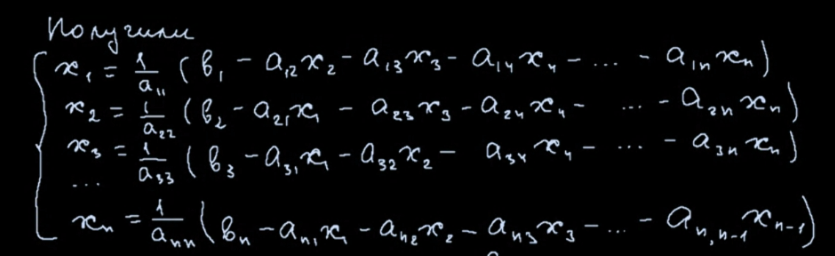 Получили
x₁ = 1/a₁₁ (b₁ - a₁₂x₂ - a₁₃x₃ - a₁₄x₄ - ... - a₁ₙxₙ)
x₂ = 1/a₂₂ (b₂ - a₂₁x₁ - a₂₃x₃ - a₂₄x₄ - ... - a₂ₙxₙ)
x₃ = 1/a₃₃ (b₃ - a₃₁x₁ - a₃₂x₂ - a₃₄x₄ - ... - a₃ₙxₙ)
...
xₙ = 1/aₙₙ (bₙ - aₙ₁x₁ - aₙ₂x₂ - aₙ₃x₃ - ... - aₙ,ₙ₋₁xₙ₋₁)